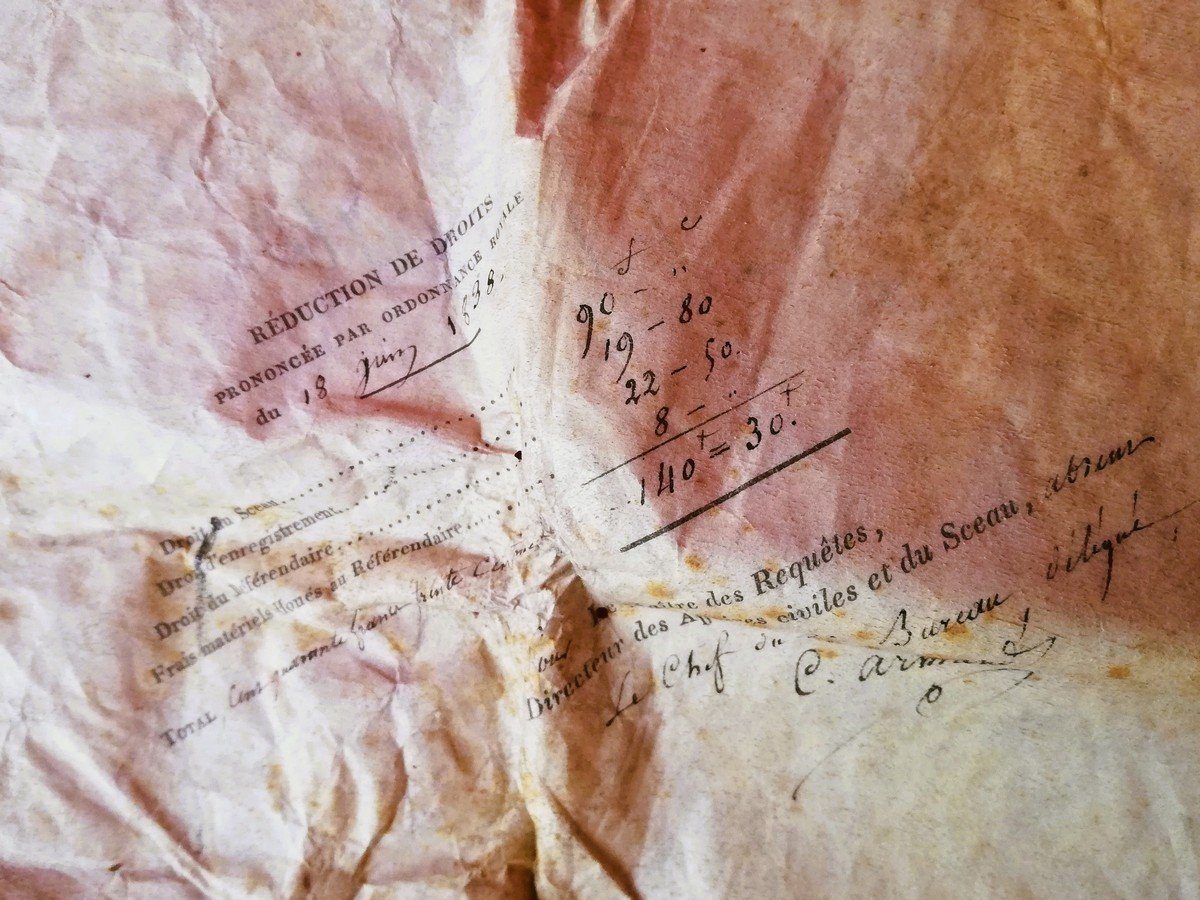 RÉDUCTION DE DROITS
PRONONCÉE PAR ORDONNANCE ROYALE
du 18 juin 1838.
f c
Droit du Sceau.......... 90 - "
Droit d'enregistrement.......... 19 - 80
Droit du Référendaire.......... 22 - 50.
Frais matériels alloués au Référendaire.......... 8 - "
TOTAL Cent quarante francs trente Cimes 140 = 30.
Le Maître des Requêtes,
Directeur des Affaires civiles et du Sceau, absent
Le Chef du Bureau délégué,
C. Armand